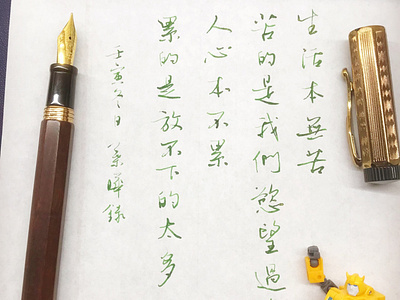 生活本無苦
苦的是我們慾望過
人心本不累
累的是放不下的太多
壬寅日 曄錄